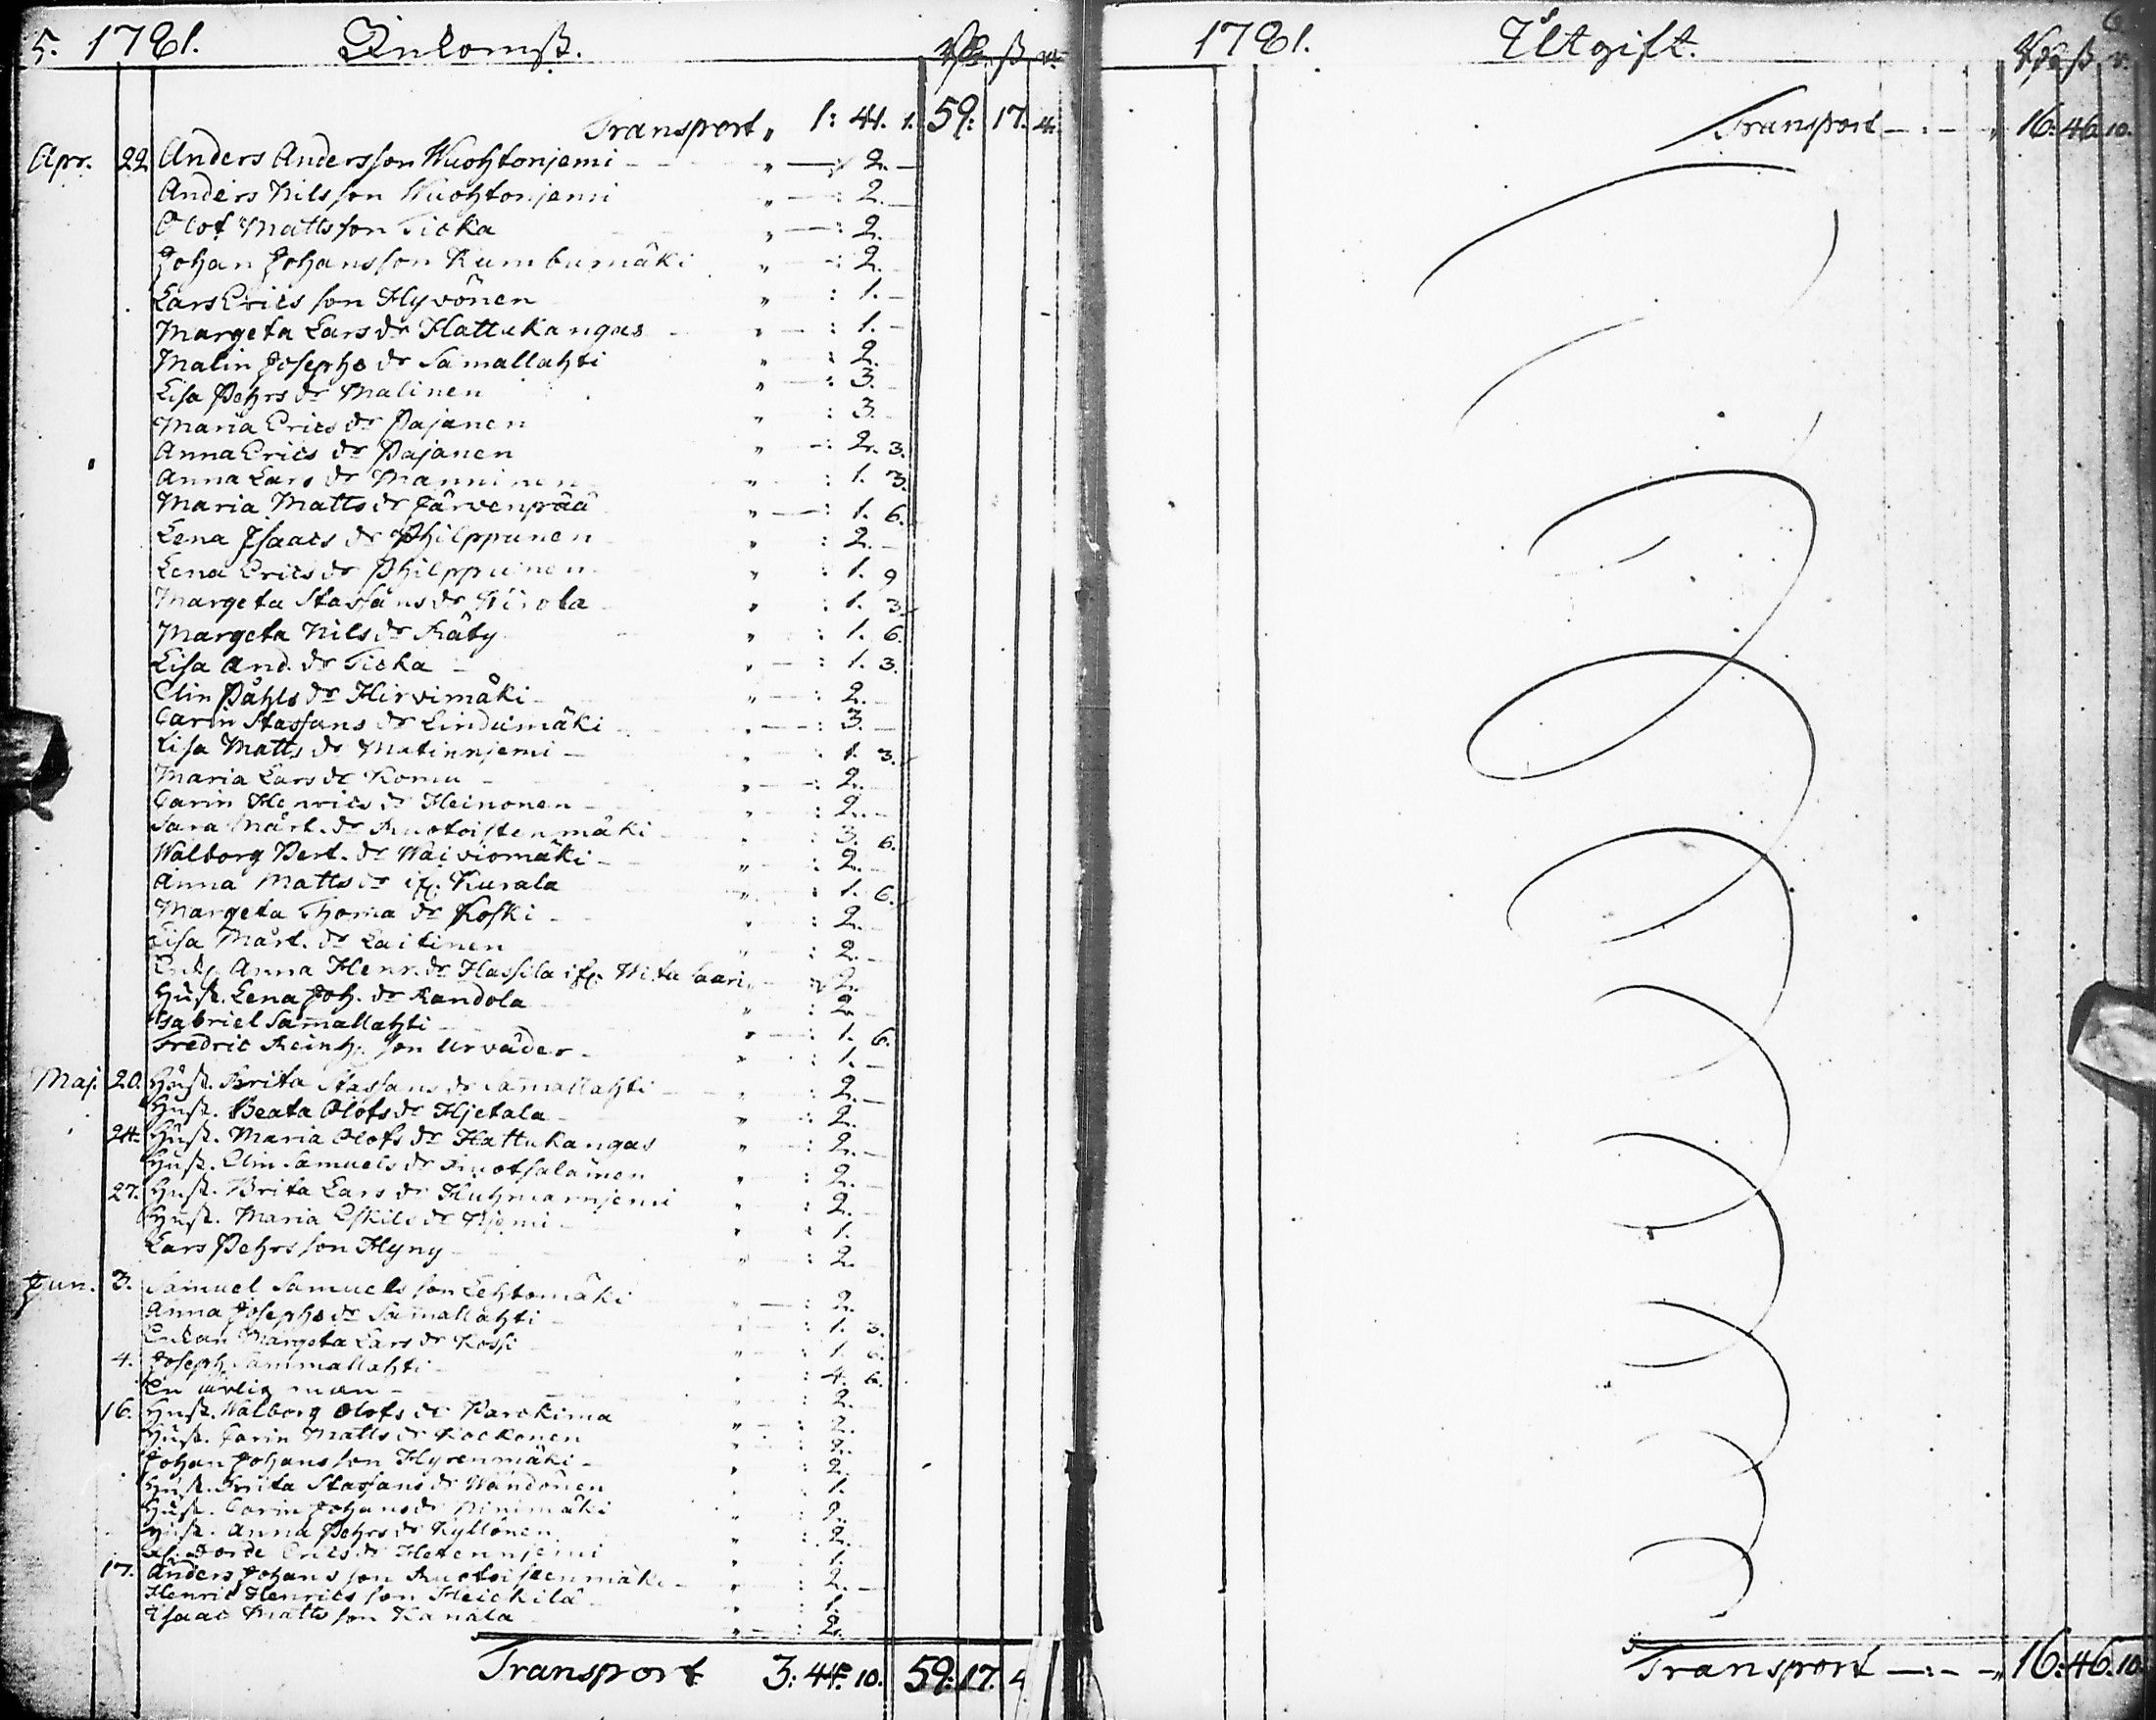 5. 1781. Inkomst. Rd. ß. r.
Transport „ 1: 41. 1. 59: 17. 4.
Apr. 22 Anders Andersson Wuohtonjemi „ — : 2. —
Anders Nilsson Wuohtonjemi „ — : 2. —
Olof Mattsson Ticka „ — : 2.
Johan Johansson Kumbumäki „ — : 2.
Lars Ericsson Hyvönen „ : 1. —
Margeta Larsdr Hattukangas „ — : 1. —
Malin Josephsdr Samallahti „ : 2.
Lisa Pehrsdr Malinen „ — : 3.
Maria Ericsdr Pajanen „ : 3.
Anna Ericsdr Pajanen „ — : 2. 3.
Anna Larsdr Manninen „ : 1. 3.
Maria Mattsdr Järvenpää „ — : 1. 6.
Lena Isaacsdr Philppunen „ : 2. —
Lena Ericsdr Philppunen „ : 1. 9
Margeta Staffansdr Wirola „ : 1. 3.
Margeta Nilsdr Räty „ : 1. 6.
Lisa And. dr Ticka „ — : 1. 3.
Elin Påhlsdr Hirvimäki „ — : 2. —
Carin Staffansdr Lindumäki „ — : 3. —
Lisa Mattsdr Matinnjemi „ : 1. 3.
Maria Larsdr Komu „ — : 2. —
Carin Henricsdr Heinonen „ : 2. —
Sara Mårt. dr Ruotoistenmäki „ : 3. 6.
Walborg Bert. dr Waiviomäki „ : 2. —
Anna Mattsdr ifr. Kurala „ : 1. 6.
Margeta Thoma dr Koski „ : 2. —
Lisa Mårt. dr Laitinen „ : 2. —
Enk. Anna Henr. dr Hassila ifr. Witasaari „ : 2. —
Hust. Lena Joh. dr Randola „ : 2
Gabriel Samallahti „ : 1. 6.
Fredric Reinh. son Urväder „ : 1. —
Maj. 20. Hust. Brita Staffansdr Samallahti „ : 2. —
Hust. Beata Olofsdr Hjetala „ : 2.
24. Hust. Maria Olofsdr Hattukangas „ : 2. —
Hust. Elin Samuelsdr Ruotsalainen „ : 2. —
27. Hust. Brita Larsdr Huhmarnjemi „ : 2. —
Hust. Maria Eskilsdr Njemi „ : 1.
Lars Pehrsson Hyny „ : 2.
Jun. 3. Samuel Samuelsson Lehtomäki „ — : 2.
Anna Josephsdr Samallahti „ : 1. 3.
Enkan Margeta Larsdr Kossi „ : 1. 6.
4. Joseph Sammallahti „ : 4. 6.
En ärlig man „ : 2.
16. Hust. Walborg Olofsdr Karokima „ : 2.
Hust. Carin Mattsdr Kockonen „ : 2.
Johan Johansson Hyrenmäki „ : 2.
Hust. Brita Staffansdr Wändönen : 1.
Hust. Carin Johansdr Ninimäki „ : 2.
Hust. Anna Pehrsdr Kyllönen „ : 2.
Ericsdr Hetennjemi „ : 1.
17. Anders Johansson Ruotoistenmäki „ : 2. —
Henric Henricsson Heickilä „ : 1.
Isaac Mattsson Kanala „ — : 2.
Transport 3: 44. 10. 59: 17. 4
1781. Utgift. Rd. ß. r. 6
Transport — : — „ 16: 46. 10.
Transport — : — „ 16: 46. 10